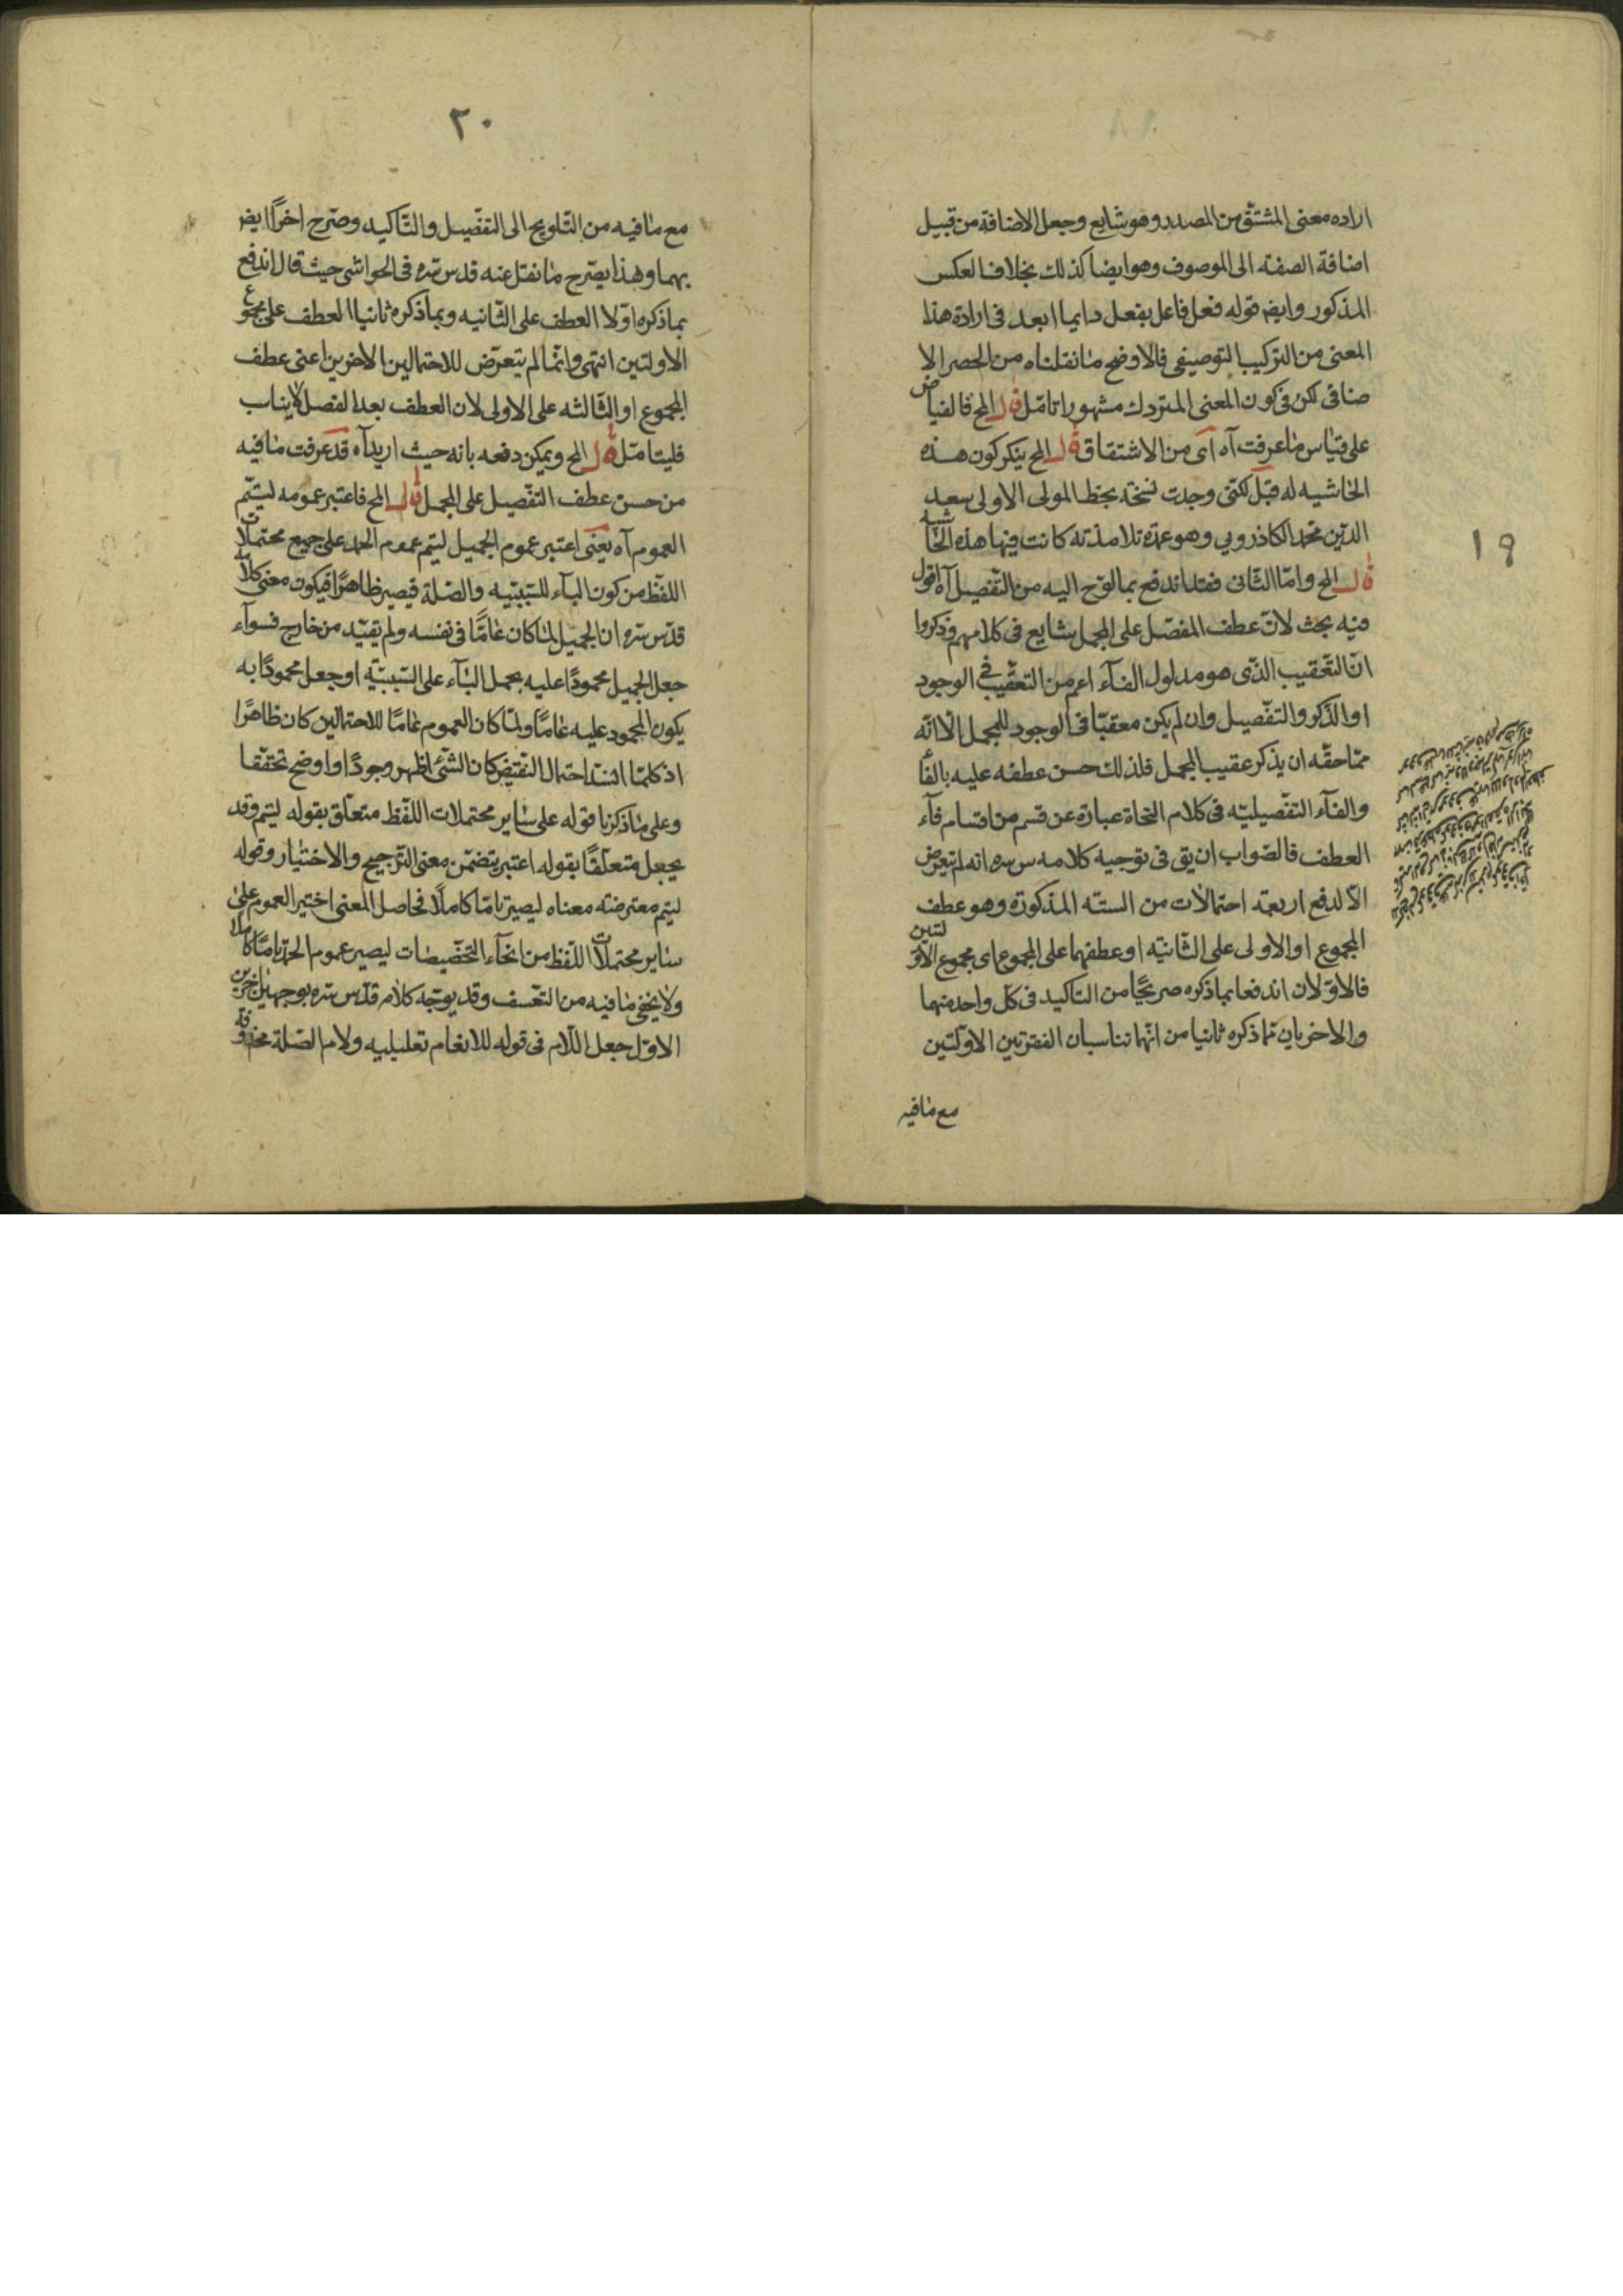 اراده معنى المشتق من المصدر وهو شايع وجعل الاضافة من قبيل
اضافة الصفته الى الموصوف وهو ايضا كذلك بخلاف العكس
المذكور وايضه قوله فعل فاعل يفعل دايما ابعد فى ارادة هذا
المعنى من التركيب التوصيفى فالاوضح ما نقلناه من الحصر الا
ضافى لكن فى كون المعنى المتردك مشهورا تامّل قال المح فالفياض
على قياس ما عرفت آه اى من الاشتقاق قال المح ينكر كون هذه
الحاشيه له قبل لكنى وجدت نسخة بخط المولى الاولى سعد
الدين محمد الكاذرونى وهو عمدة تلامذته كانت فيها هذه الحاشيه
قال المح وامّا الثانى فقد اندفع بما لوّح اليه من التفصيل آه اقول
فيه بحث لانّ عطف المفصّل على المجمل شايع فى كلامهم وذكروا
انّ التعقيب الذى هو مدلول الفآء اعم من التعقيب فى الوجود
او الذكر والتفصيل وان لم يكن معقبّا فى الوجود للمجمل الّا انّه
ممّا حقّه ان يذكر عقيب المجمل فلذلك حسن عطفه عليه بالفأ
والفآء التفصيليّه فى كلام النحاة عبارة عن قسم من اقسام فآء
العطف فالصّواب ان يق فى توجيه كلامه س سره انه لم يتعرض
الّا لدفع اربعة احتمالات من الستّه المذكورة وهو عطف
المجموع او الاولى على الثّانيّه او عطفهما على المجموع اى مجموع الاوّلتين
فالاوّلان اندفعا بما ذكره صريحًا من التاكيد فى كل واحد منهما
والاخريان بما ذكره ثانيا من انّهما تناسبان الفقرتين الاوّلتين
مع مافيه
١٩
٢٠
مع مافيه من التّلويح الى التفصيل والتّاكيد وصرّح اخرًا ايضه
بهما وهذا يصّرح ما نقل عنه قدس سره فى الحواشى حيث قال اندفع
بما ذكره اوّلا العطف على الثّانيه وبما ذكره ثانيا العطف على مجموع
الاولتين انتهى وانّما لم يتعرّض للاحتمالين الاخرين اعنى عطف
المجموع او الثّالثه على الاولى لان العطف بعد الفصل لا يناب
فليتامّل قال المح ويمكن دفعه بانه حيث اريد آه قد عرفت مافيه
من حسن عطف التفصيل على المجمل قال المح فاعتبر عمومه ليتمّ
العموم آه يعنى اعتبر عموم الجميل ليتم عموم الحمد على جميع محتملات
اللفظ من كون البآء للسّببيّه والصّلة فيصير ظاهرًا فيكون معنى كلامه
قدّس سره ان الجميل لمّا كان عامًّا فى نفسه ولم يقيّد من خارج فسوآء
جعل الجميل محمودًا عليه بحمل البآء على السّببيّة او جعل محمودًا به
يكون المحمود عليه عامًّا ولمّا كان العموم عامّا للاحتمالين كان ظاهرًا
اذ كلّما انسدّ احتمال النقيض كان الشئ اظهر وجودًا او اوضح تحققا
وعلى ما ذكرنا قوله على ساير محتملات اللّفظ متعلّق بقوله ليتم وقد
يجعل متعلّقًا بقوله اعتبر بتضمّن معنى التّرجيح والاختيار وقوله
ليتم معترضته معناه ليصير تامّا كاملًا فحاصل المعنى اختير العموم على
ساير محتملات اللّفظ من انحآء التخصّيصات ليصير عموم الحمد تامًّا كاملا
ولا يخفى مافيه من التعّسف وقد يوجّه كلام قدّس سره بوجهين اخرين
الاوّل جعل اللّام فى قوله للانعام تعليليه ولام الصّلة محذوفة